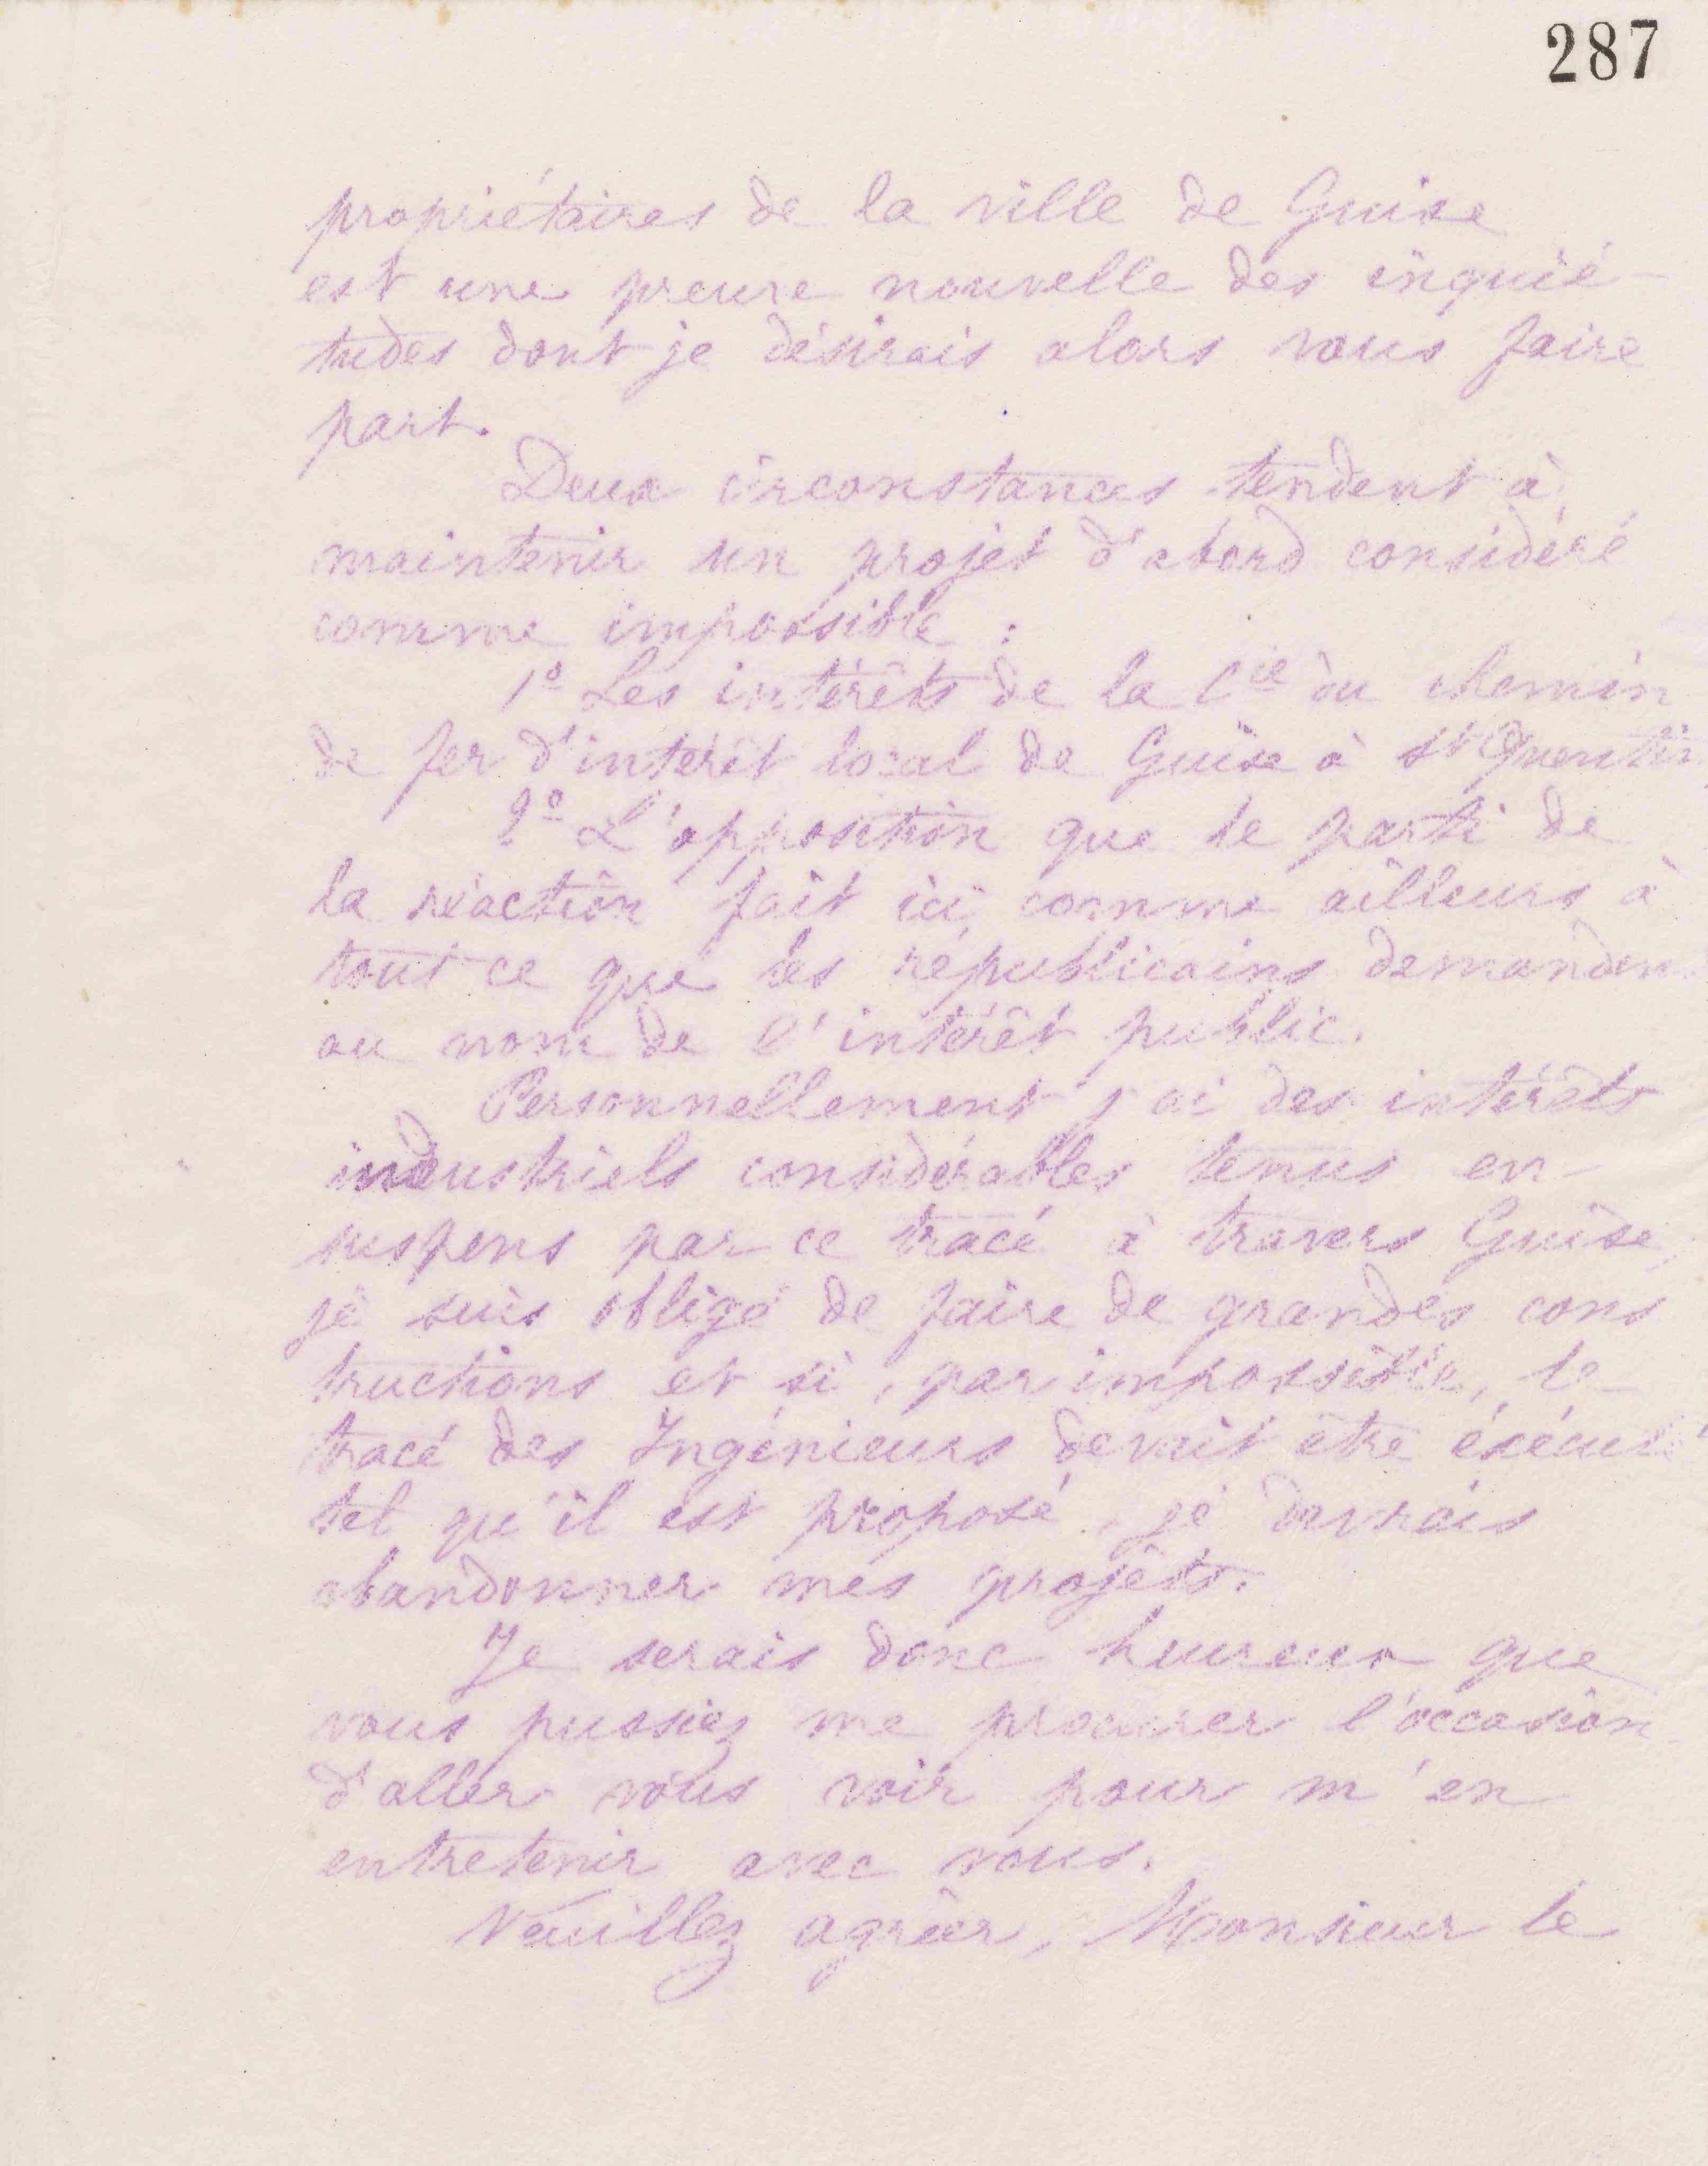 287
propriétaires de la ville de Guise
est une preuve nouvelle des inquié-
tudes dont je désirais alors vous faire
part.
Deux circonstances tendent à
maintenir un projet d'abord considéré
comme impossible :
1º Les intérêts de la Cie du chemin
de fer d'intérêt local de Guise à St Quentin
2º L'opposition que le parti de
la réaction fait ici, comme ailleurs à
tout ce que les républicains demanden
au nom de l'intérêt public.
Personnellement j'ai des intérêts
industriels considérables tenus en
suspens par ce tracé à travers Guise,
je suis obligé de faire de grandes cons
tructions et si, par impossible, le
tracé des Ingénieurs devait être éxécuté
tel qu'il est proposé, je devrais
abandonner mes projets.
Je serais donc heureux que
vous pussiez me procurer l'occasion
d'aller vous voir pour m'en
entretenir avec vous.
Veuillez agréer, Monsieur le